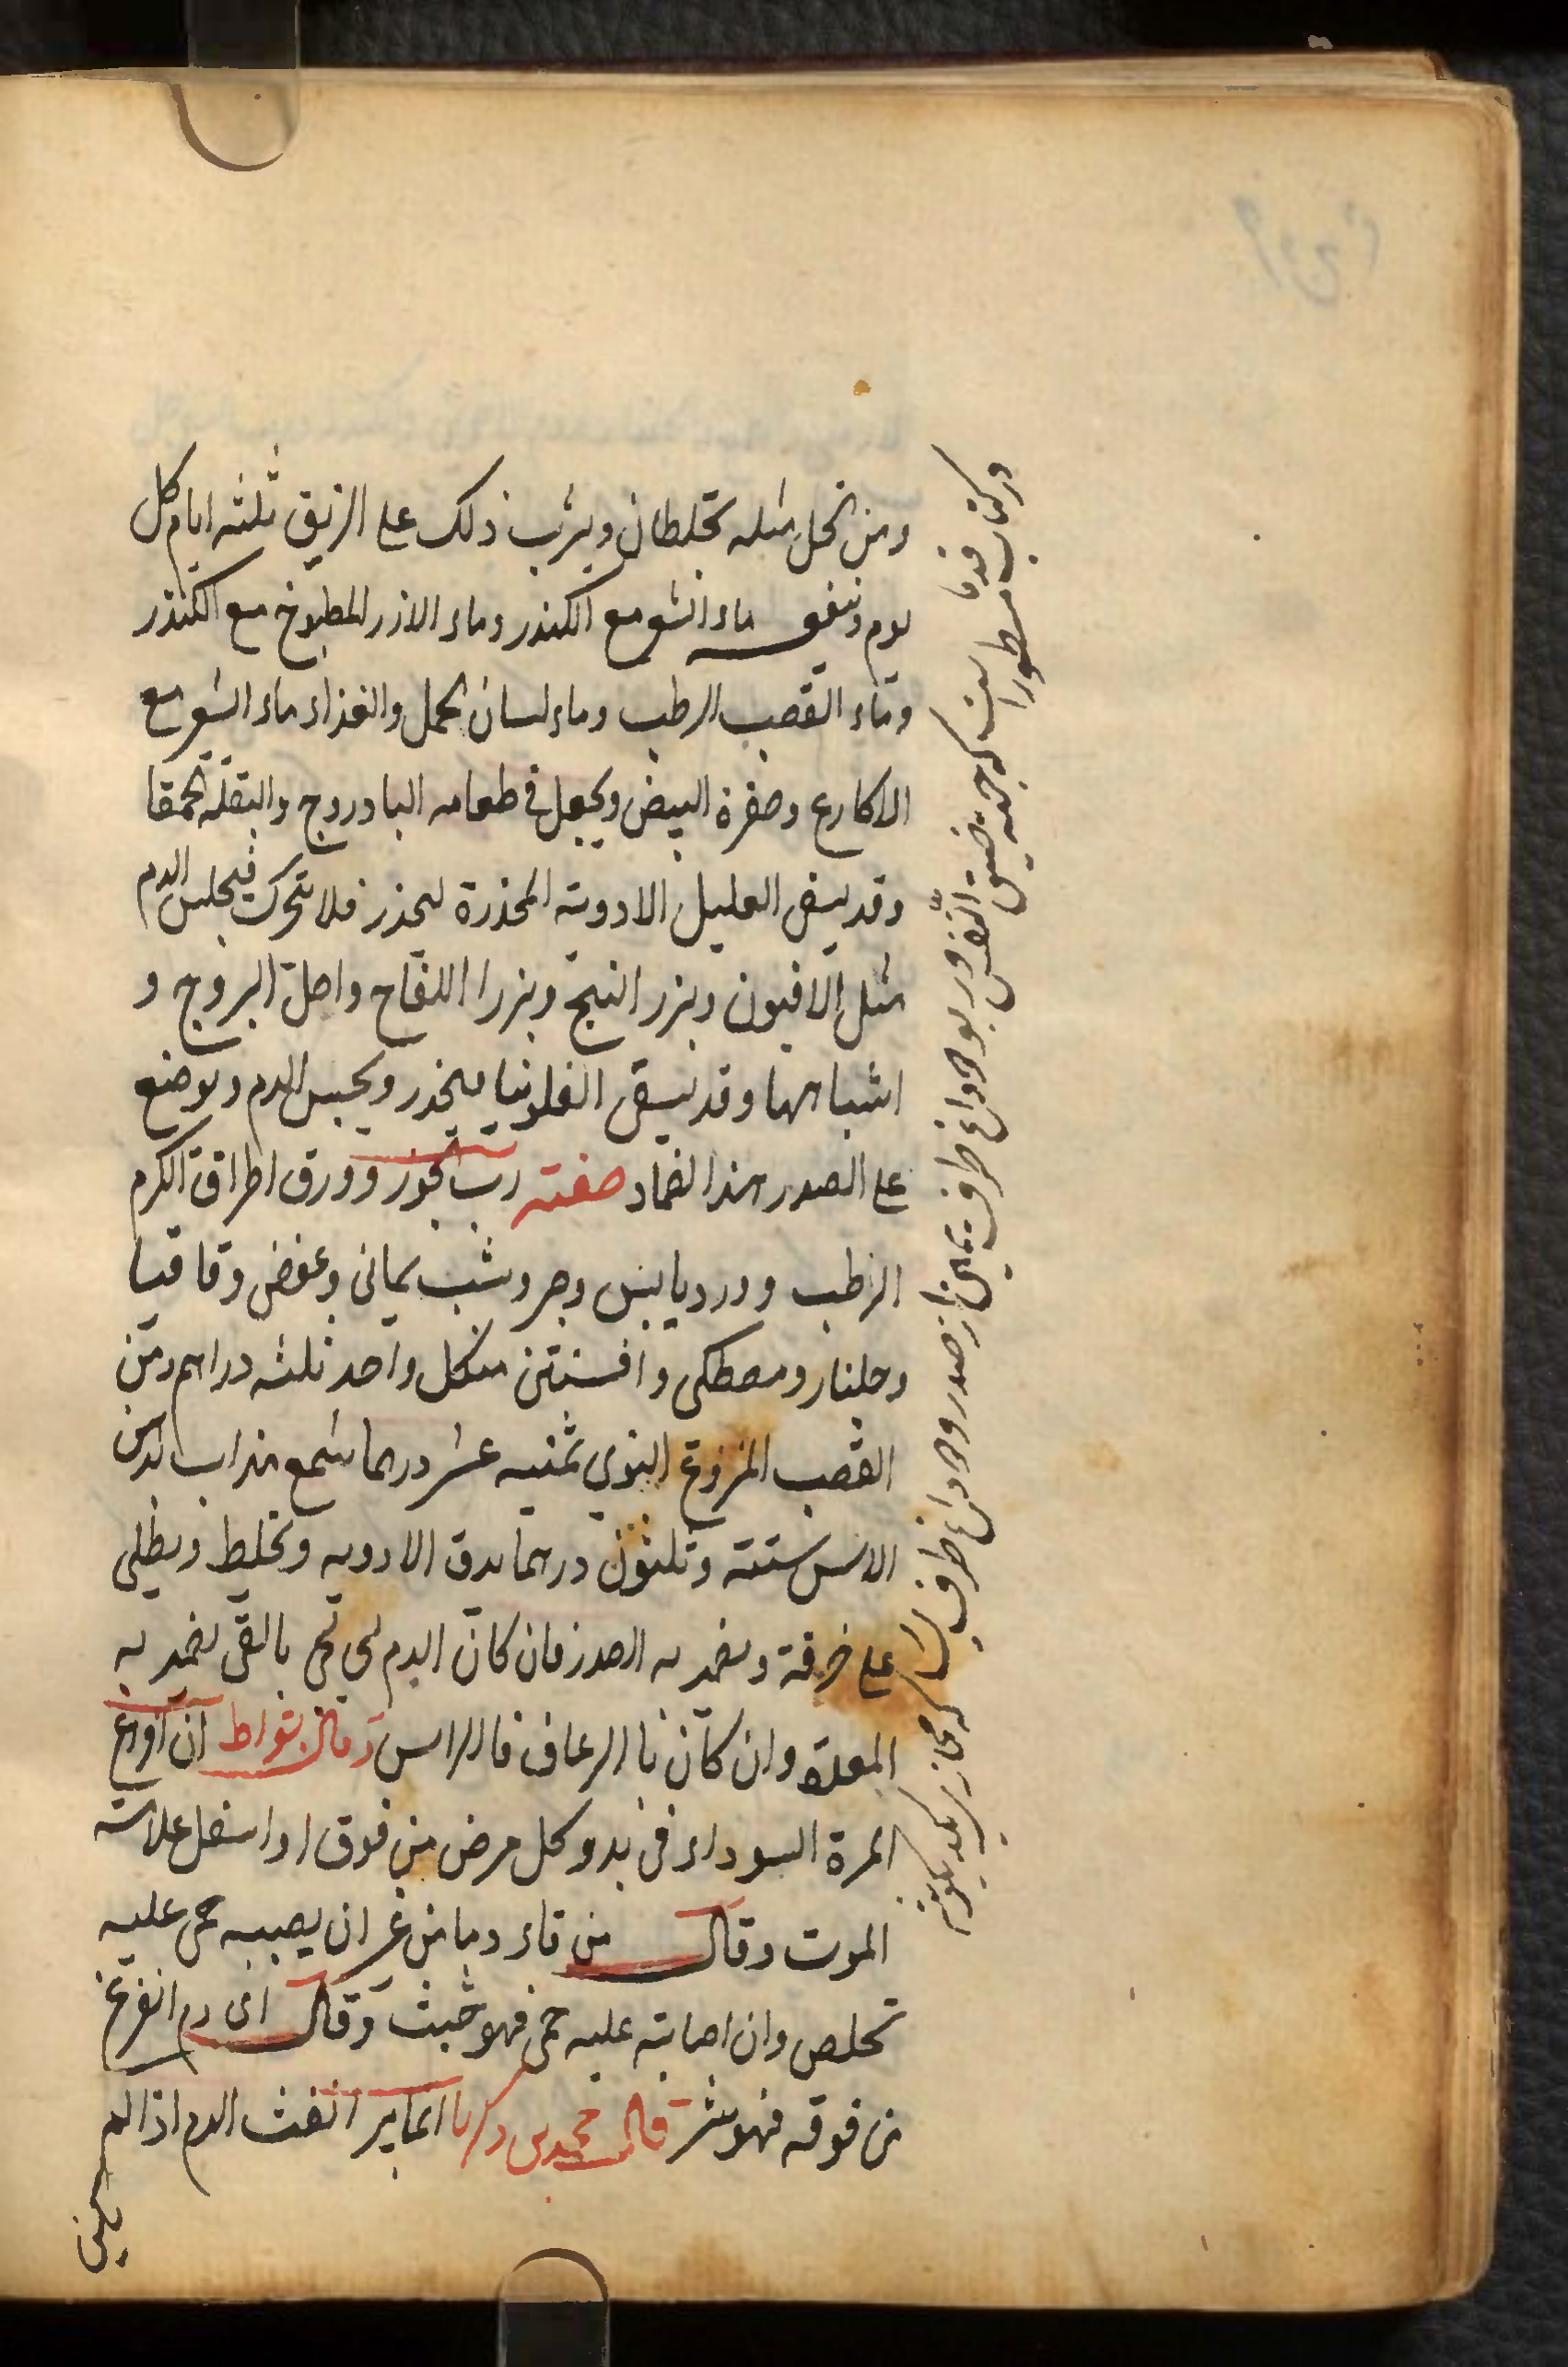 ومن الخل مثله يخلطان ويشرب ذلك على الريق ثلثه ايام كل
يوم وينفع ماء الشعير مع الكندر وماء الارز المطبوخ مع الكندر
وماء القصب الرطب وماء لسان الحمل والغذاء ماء الشعير مع
الاكارع وصفرة البيض ويجعل في طعامه البادروج والبقلة الحمقا
وقد يسقى العليل الادوية المخدرة ليخدر فلا يتحرك فيحبس الدم
مثل الافيون وبزر البنج وبزر اللفاح واصل اليبروج و
اشباهها وقد يسقى الفلونيا ليخدر ويحبس الدم ويوضع
على الصدر هذا الضماد صفته رب الجوز وورق اطراف الكرم
الرطب وورد يابس وصبر وشب يماني وعفص وقاقيا
وجلنار ومصطكى وافسنتين من كل واحد ثلثه دراهم ومن
القصب المنزوع النوى ثمنيه عشر درهما شمع مذاب بدهن
الاس ستة وثلثون درهما يدق الادويه ويخلط ويطلى
على خرقة ويضمد به الصدر فان كان الدم يجي بالقي يضمد به
المعدة وان كان با الرعاف فالراس وقال بقراط ان افراغ
المرة السوداء في بدو كل مرض من فوق او اسفل علامة
الموت وقال من قاء دما من غير ان يصيبه حمى عليه
تخلص وان اصابته عليه حمى فهو خبيث وقال اى دم انفرغ
من فوقه فهو شر قال محمد بن زكريا انما يبر انفث الدم اذا لم
يكن
در كتاب قدما مسطور است كه جهة ضيق النفس وربو دو داغ طرف يمين از صدر و دو داغ طرف يسار كه محاذى يكديگر